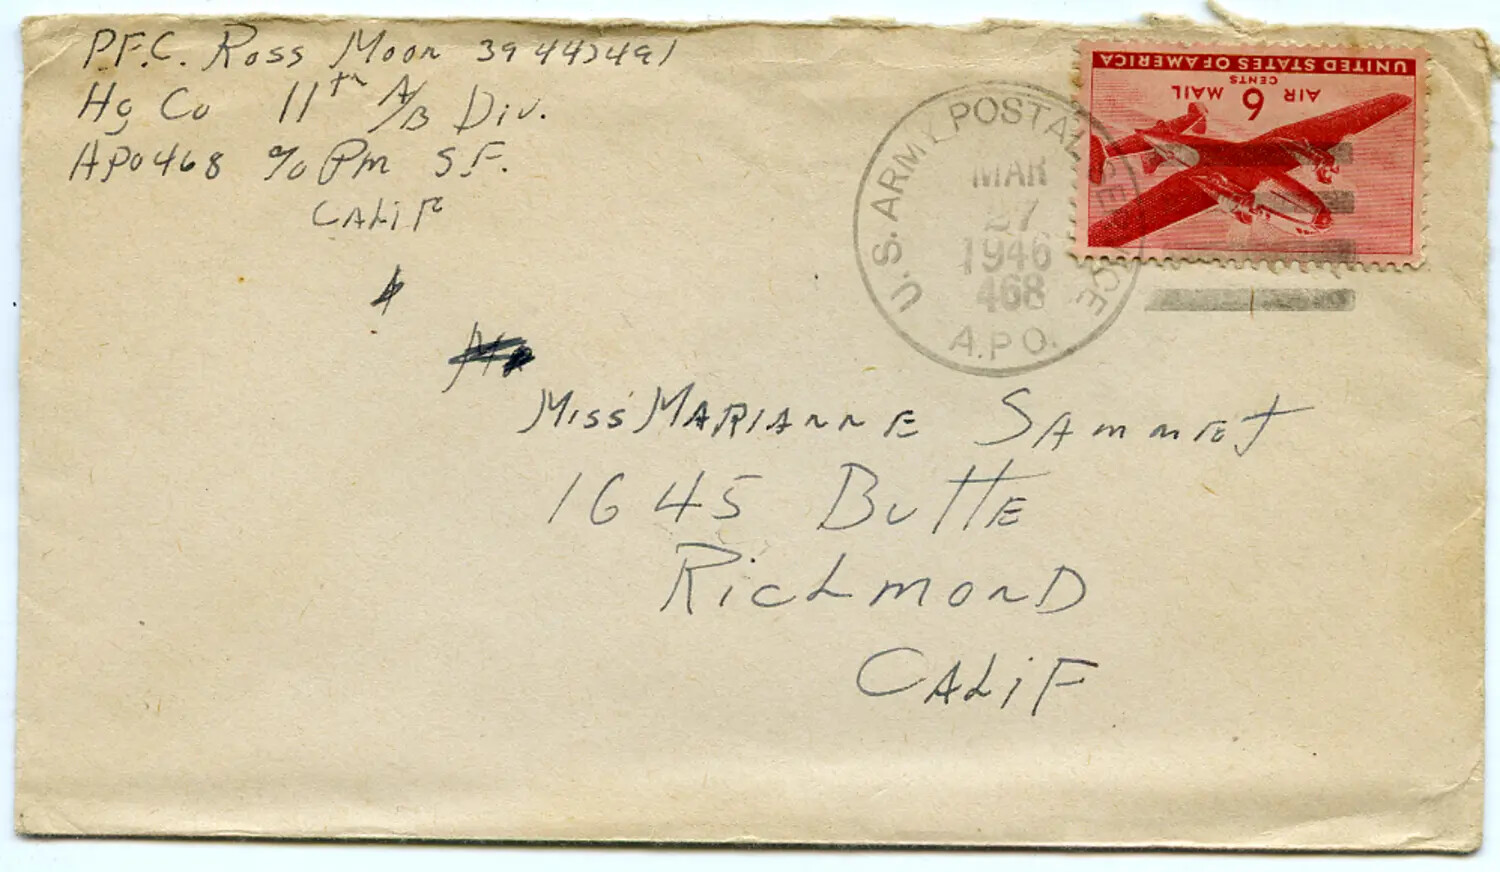 P.F.C. Ross Moon 39442491
Hq Co 11th A/B Div.
APO 468 % PM S.F.
CALIF
UNITED STATES OF AMERICA
CENTS
AIR 6 MAIL
U.S. ARMY POSTAL SERVICE
MAR
27
1946
468
A.P.O.
Miss MARIANNE SAmmet
1645 ButtE
RichmonD
CALiF